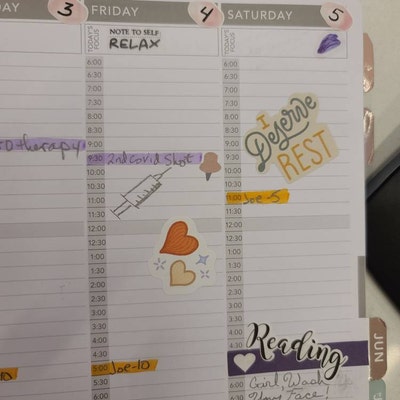 DAY 3
therapy
FRIDAY 4
TODAY'S FOCUS
NOTE TO SELF:
RELAX
6:00
6:30
7:00
7:30
8:00
8:30
9:00
9:30 2nd covid shot
10:00
10:30
11:00
11:30
12:00
12:30
1:00
1:30
2:00
2:30
3:00
3:30
4:00
4:30
5:00 Joe-10
5:30
6:00
SATURDAY 5
TODAY'S FOCUS
6:00
6:30
7:00
7:30
8:00
8:30
9:00
9:30
10:00
10:30
11:00 Joe-5
11:30
12:00
12:30
1:00
1:30
2:00
2:30
3:00
3:30
4:00
4:30
5:00
5:30
6:00
I
Deserve
REST
Reading
Girl, Wash
Your Face!
JUN